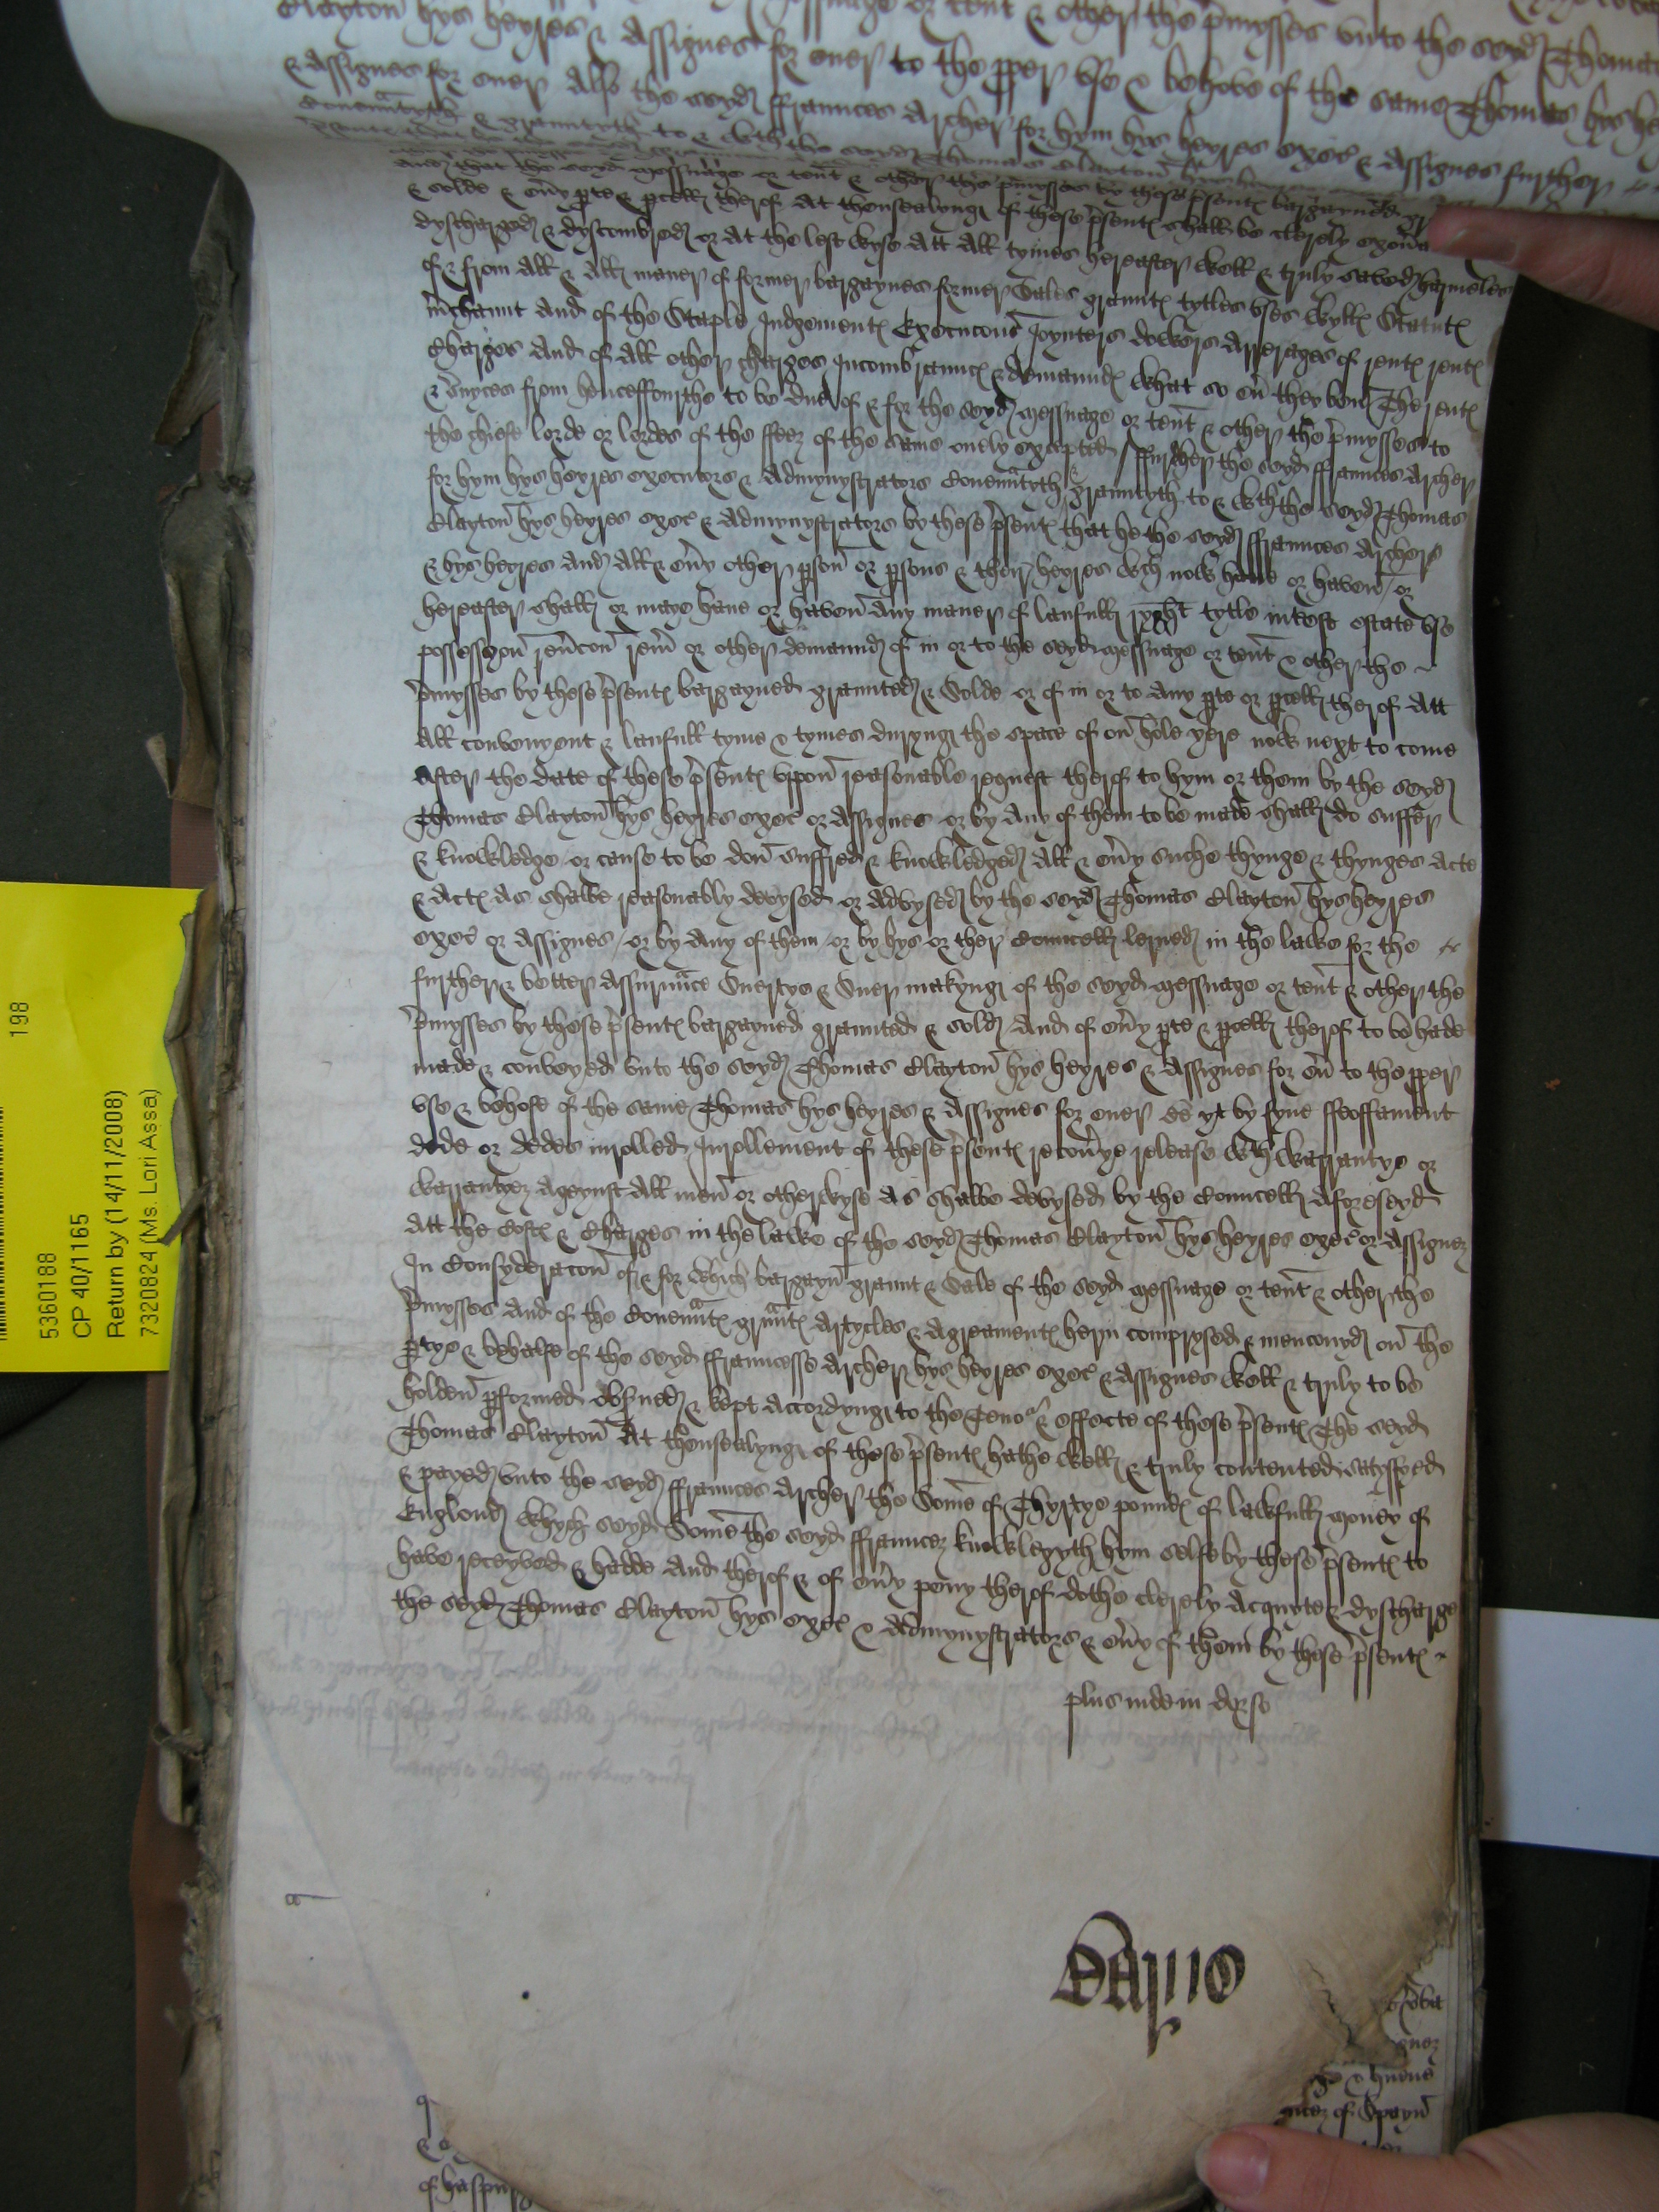 Clayton hys heyres & Assignes for euer to the pper vse & behove of the same Thomas hys he
& Assignes for euer Also the seyd ffraunces Archer for hym hys heyres exec & Assignes further
Couenntyth & grauntyth to & wth the seyd Thomas Clayton
And that the seyd messuage or tent & other the pmysses by these psent bargayned
& solde & euy pte & pcell therof At thensealyng of these psent shalbe clerely
dyscharged & dyscombred or At the lest wyse Att All tymes hereafter well & truly saved harmeles
of & from All & All maner of former bargaynes former Sales graunt tytles vses wyll Statut
mchaunt And of the Staple Judgement Execucons Joynters dowers Arrerages of rent rent
Charges And of All other charges Incombraunc & demaund what so eu they ben The rent
& suyces from henceffourthe to be due of & for the seyd messuage or tent & other the pmysses to
the chiefe lorde or lordes of the ffeez of the same onely excepted / ffurther the seyd ffraunces Archer
for hym hys heyres executors & Admynystrators Couenntyth & grauntyth to & wth the seyd Thomas
Clayton hys heyres exec & Admynystrators by these psent that he the seyd ffraunces Archer
& hys heyres And All & euy other pson or psons & their heyres wch now have or haven / or
hereafter shall or maye have or haven Any maner of laufull ryght tytle intrest estate vse
possessyon reucon rem or other demaund of in or to the seyd messuage or tent & other the
pmysses by these psent bargayned graunted & Solde or of in or to Any pte or pcell therof Att
All convenyent & laufull tyme & tymes duryng the space of on hole yere now next to come
After the date of these psent vppon reasonable request therof to hym or them by the seyd
Thomas Clayton hys heyres exec or Assignes or by Any of them to be made shall do suffer
& knowledge or cause to be don suffred & knowledged All & euy suche thynge & thynges Acte
& Act As shalbe reasonably devysed or Advysed by the seyd Thomas Clayton hys heyres
exec or Assignes / or by Any of them / or by hys or ther Councell lerned in the lawe for the
further & better Assurance Suertye & Suer makyng of the seyd messuage or tent & other the
pmysses by these psent bargayned graunted & sold And of euy pte & pcell therof to be hade
made & conveyed vnto the seyd Thomas Clayton hys heyres & Assignes for eu to the pper
vse & behofe of the same Thomas hys heyres & Assignes for euer be yt by fyne ffeoffament
dede or dedes inrolled Inrollement of these psent recouye release wth warrantye or
warrantyez Ageynst All men or otherwyse As shalbe devysed by the Councell Aforeseyd
Att the Cost & Charges in the lawe of the seyd Thomas Clayton hys heyres exec or Assignez
In Consyderacon of & for which bargayn graunt & Sale of the seyd messuage or tent & other the
pmysses And of the Couennt grannt Artycles & Agreament herin comprysed & menconyd on the
ptye & behalfe of the seyd ffrauncesse Archer hys heyres exec & Assignes well & truly to be
holden pformed obsued & kept Accordyng to the Teno & effecte of these psent The seyd
Thomas Clayton At thensealyng of these psent hathe well & truly contented satysfyed
& payed vnto the seyd ffraunces Archer the Some of Thyrtye pound of lawfull money of
Englond whych seyd Some the seyd ffrauncez knowlegyth hym selfe by these psent to
have receyved & hadde And therof & of euy peny therof dothe clerely Acquyte & dyscharge
the seyd Thomas Clayton hys exec & Admynystrators & euy of them by these psent
plus inde in dorso
198
5360188
CP 40/1165
Return by (14/11/2008)
7320824 (Ms. Lori Assa)
of Spayn